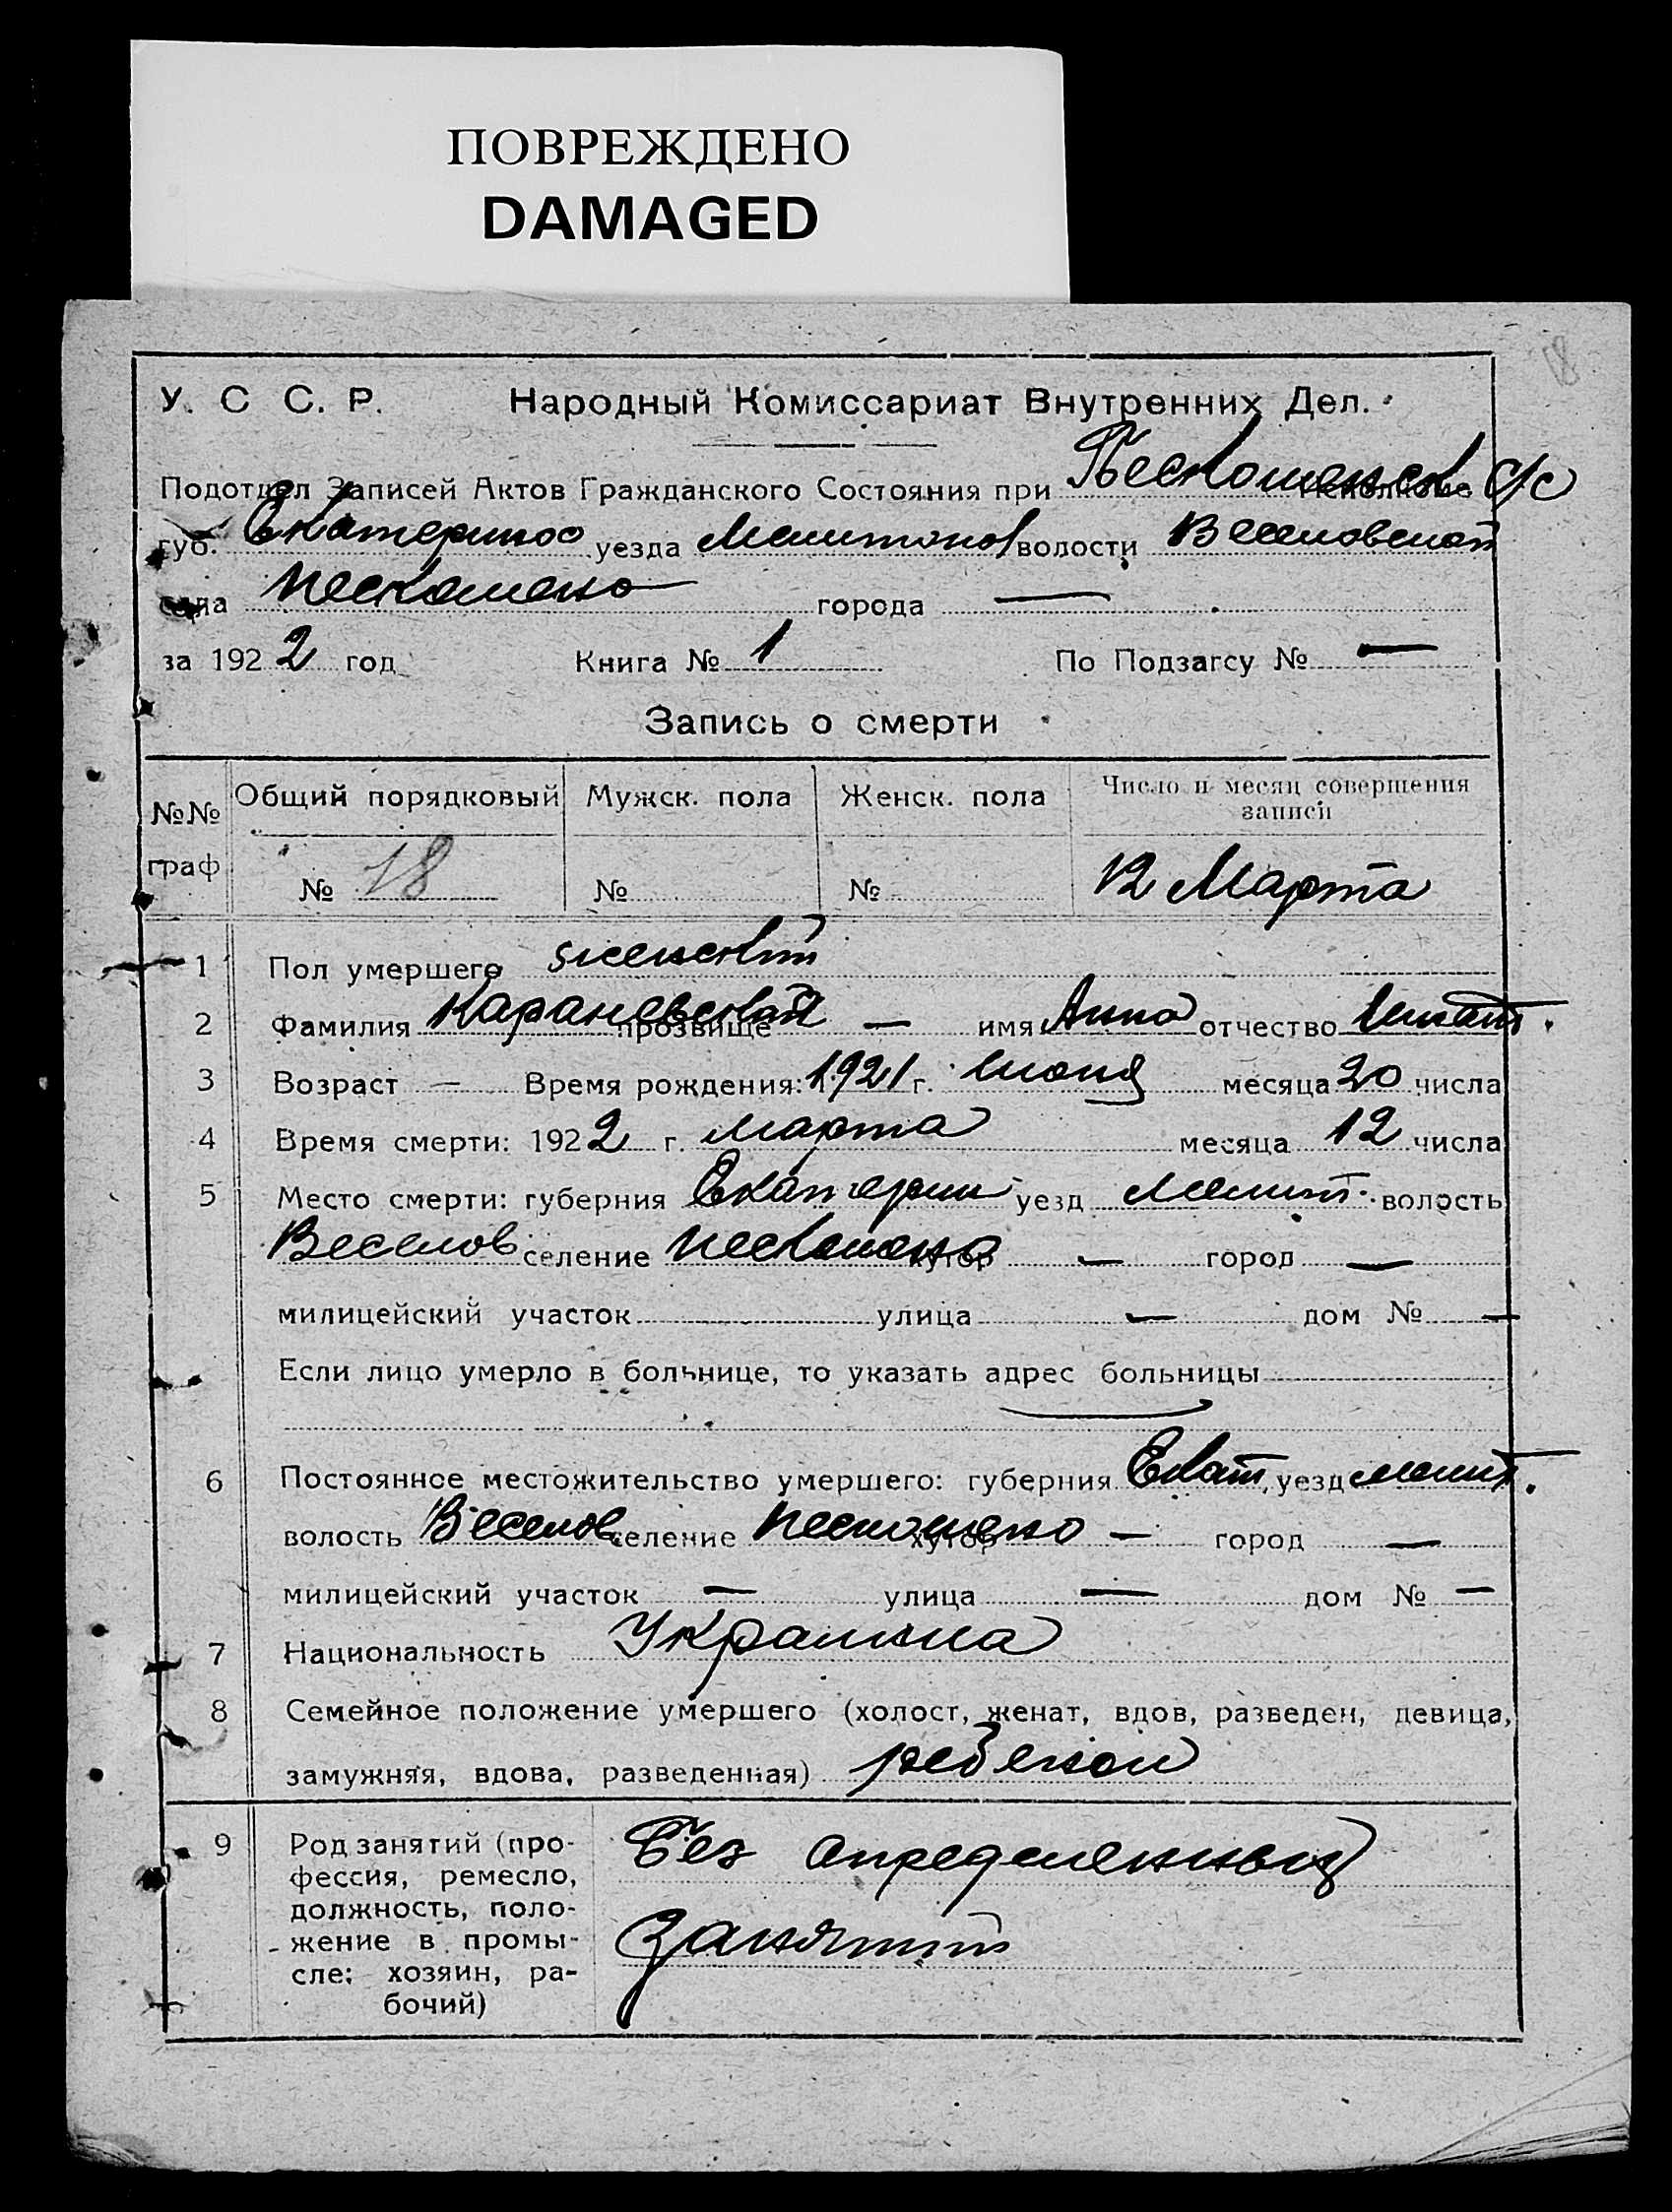 ПОВРЕЖДЕНО
DAMAGED
18
У. С С. Р. Народный Комиссариат Внутренних Дел.
Подотдел Записей Актов Гражданского Состояния при с/с
губ. Екатеринос уезда волости Веселовской
села города —
за 1922 год Книга № 1 По Подзагсу № —
Запись о смерти
№№ граф Общий порядковый Мужск. пола Женск. пола Число и месяц совершения записи
№ 18 № № 12 Марта
1 Пол умершего женский
2 Фамилия прозвище — имя Анна отчество
3 Возраст — Время рождения: 1921 г. месяца 20 числа
4 Время смерти: 1922 г. марта месяца 12 числа
5 Место смерти: губерния Екатерин уезд Мелит. волость
Веселов селение хутор — город —
милицейский участок улица — дом № —
Если лицо умерло в больнице, то указать адрес больницы
6 Постоянное местожительство умершего: губерния Екат. уезд мелит.
волость Веселов селение хутор — город —
милицейский участок — улица — дом № —
7 Национальность
8 Семейное положение умершего (холост, женат, вдов, разведен, девица,
замужняя, вдова, разведенная) ребенок
9 Род занятий (про-
фессия, ремесло,
должность, поло-
жение в промы-
сле: хозяин, ра-
бочий)
Без определенных
занятий